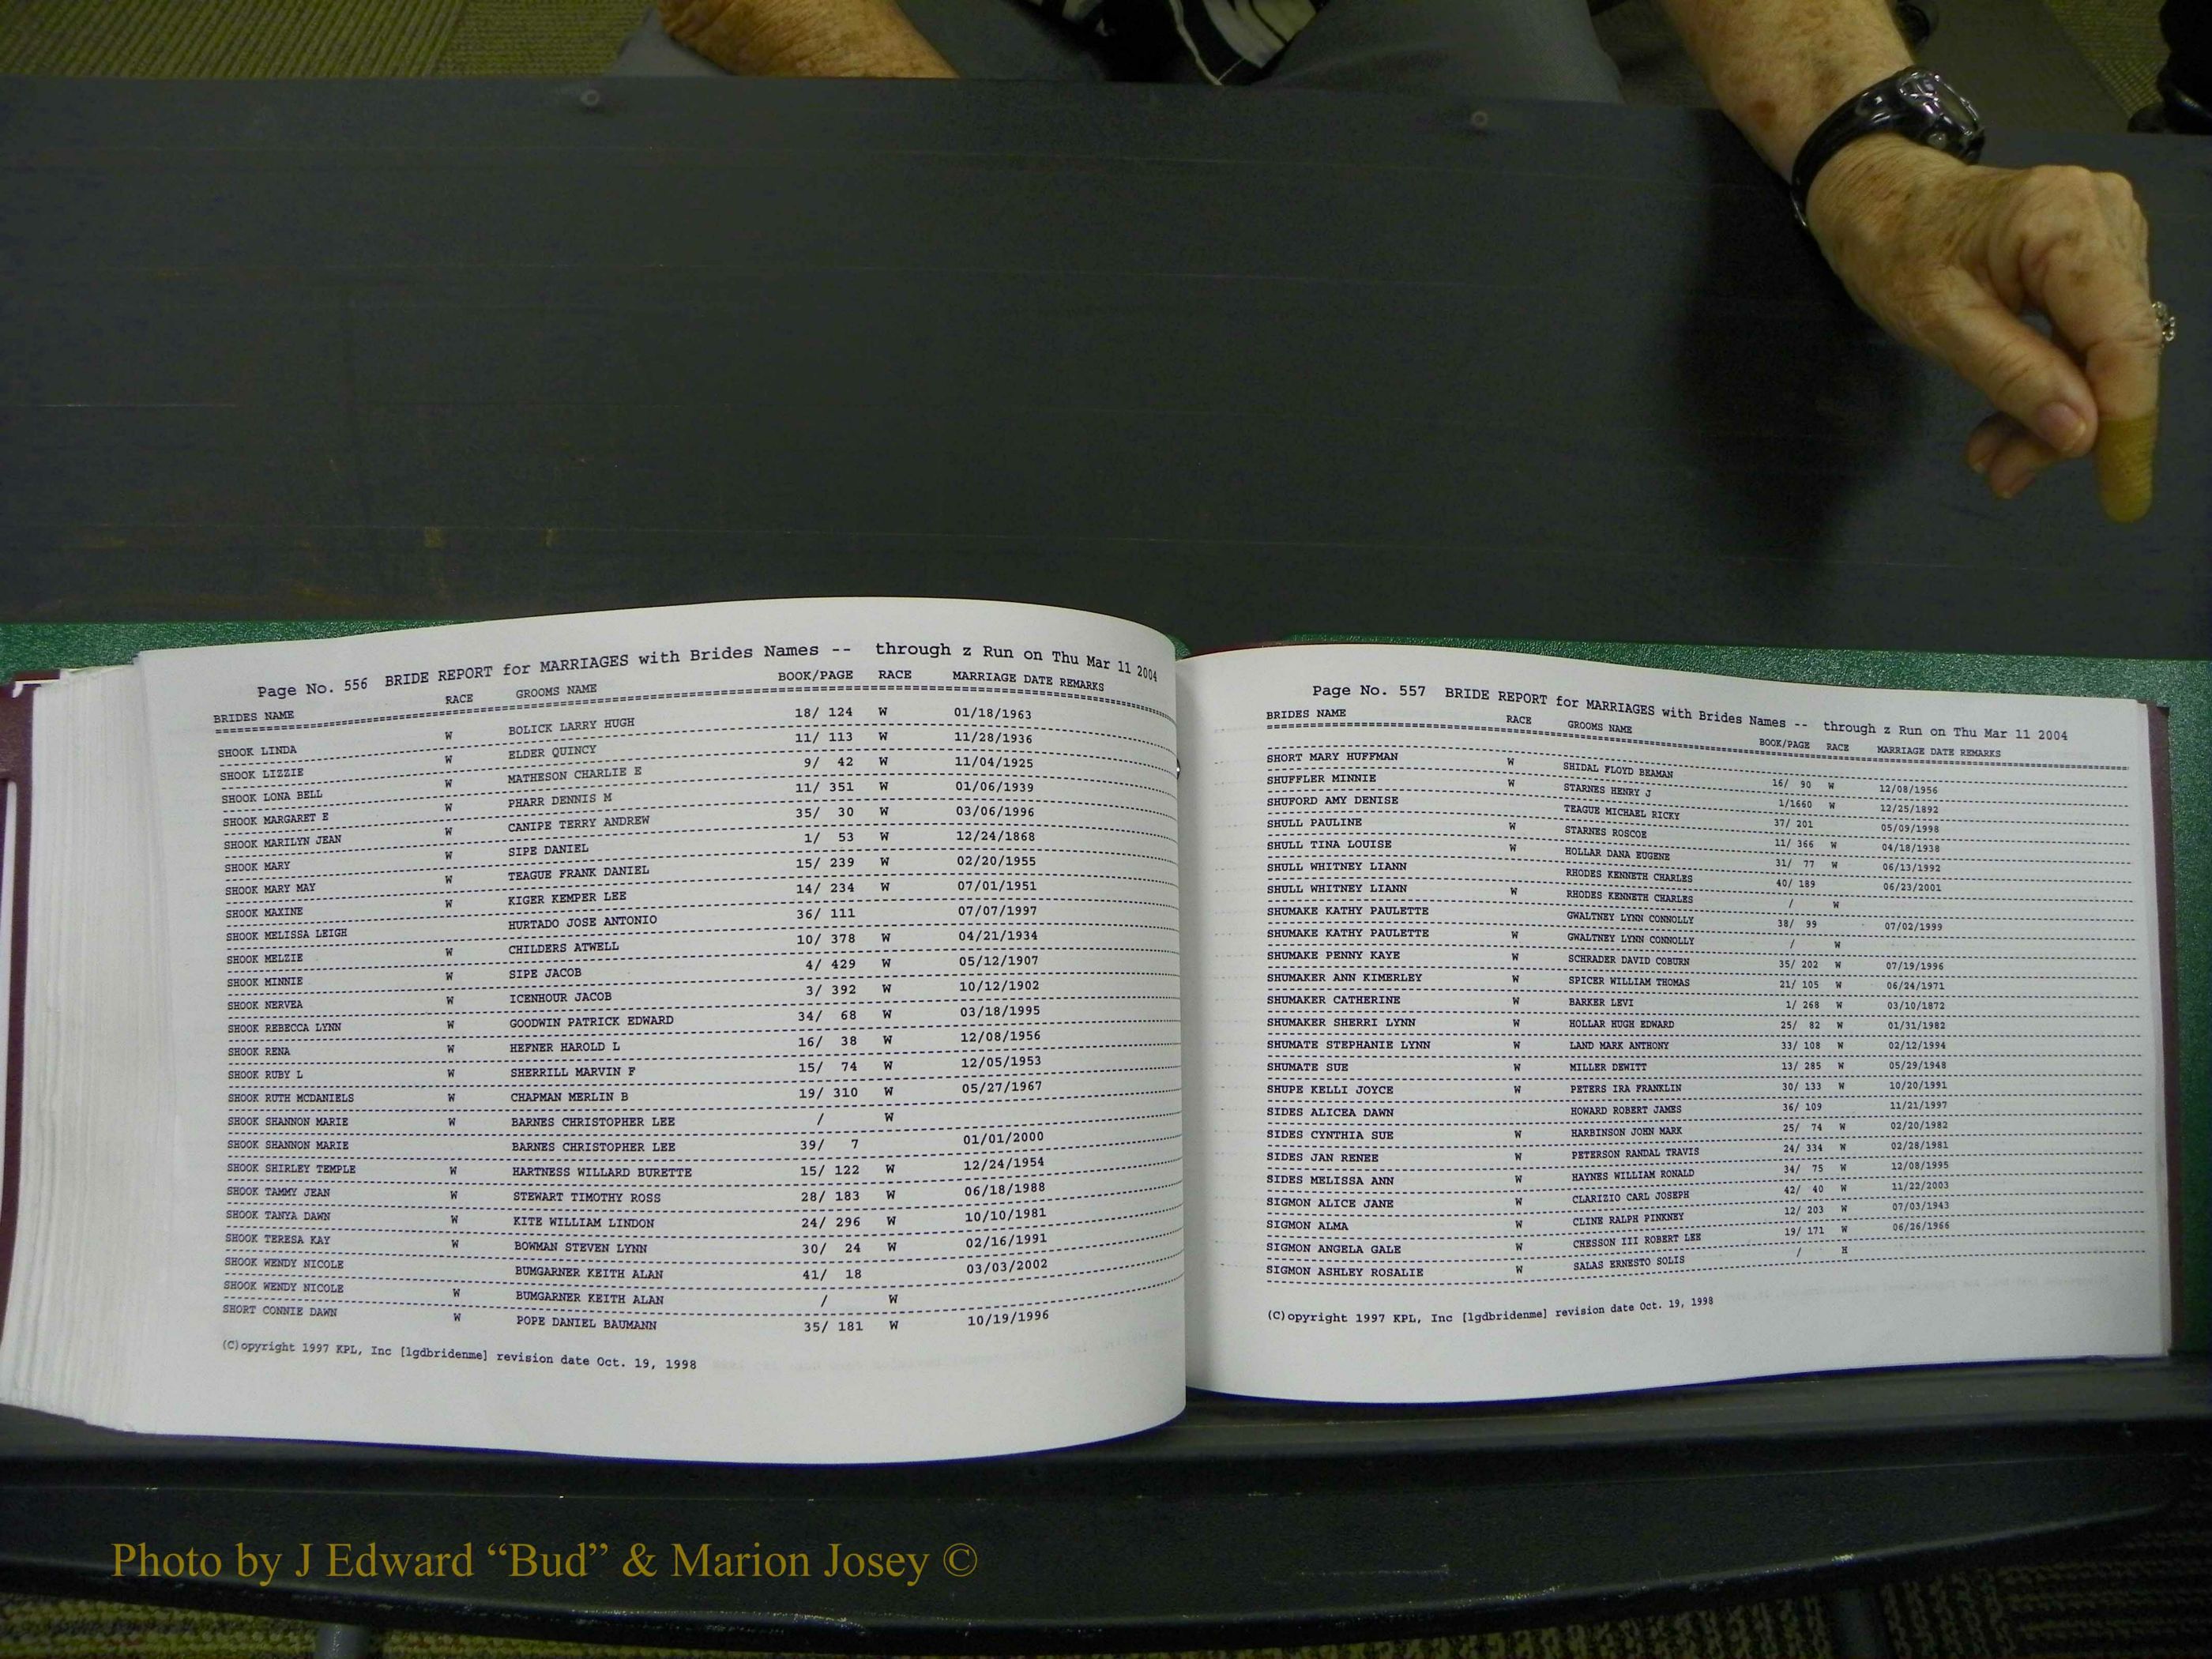 Page No. 556 BRIDE REPORT for MARRIAGES with Brides Names -- through z Run on Thu Mar 11 2004
BRIDES NAME RACE GROOMS NAME BOOK/PAGE RACE MARRIAGE DATE REMARKS
SHOOK LINDA W BOLICK LARRY HUGH 18/ 124 W 01/18/1963
SHOOK LIZZIE W ELDER QUINCY 11/ 113 W 11/28/1936
SHOOK LONA BELL W MATHESON CHARLIE E 9/ 42 W 11/04/1925
SHOOK MARGARET E W PHARR DENNIS M 11/ 351 W 01/06/1939
SHOOK MARILYN JEAN W CANIPE TERRY ANDREW 35/ 30 W 03/06/1996
SHOOK MARY W SIPE DANIEL 1/ 53 W 12/24/1868
SHOOK MARY MAY W TEAGUE FRANK DANIEL 15/ 239 W 02/20/1955
SHOOK MAXINE W KIGER KEMPER LEE 14/ 234 W 07/01/1951
SHOOK MELISSA LEIGH HURTADO JOSE ANTONIO 36/ 111 07/07/1997
SHOOK MELZIE W CHILDERS ATWELL 10/ 378 W 04/21/1934
SHOOK MINNIE W SIPE JACOB 4/ 429 W 05/12/1907
SHOOK NERVEA W ICENHOUR JACOB 3/ 392 W 10/12/1902
SHOOK REBECCA LYNN W GOODWIN PATRICK EDWARD 34/ 68 W 03/18/1995
SHOOK RENA W HEFNER HAROLD L 16/ 38 W 12/08/1956
SHOOK RUBY L W SHERRILL MARVIN F 15/ 74 W 12/05/1953
SHOOK RUTH MCDANIELS W CHAPMAN MERLIN B 19/ 310 W 05/27/1967
SHOOK SHANNON MARIE W BARNES CHRISTOPHER LEE / W
SHOOK SHANNON MARIE BARNES CHRISTOPHER LEE 39/ 7 01/01/2000
SHOOK SHIRLEY TEMPLE W HARTNESS WILLARD BURETTE 15/ 122 W 12/24/1954
SHOOK TAMMY JEAN W STEWART TIMOTHY ROSS 28/ 183 W 06/18/1988
SHOOK TANYA DAWN W KITE WILLIAM LINDON 24/ 296 W 10/10/1981
SHOOK TERESA KAY W BOWMAN STEVEN LYNN 30/ 24 W 02/16/1991
SHOOK WENDY NICOLE BUMGARNER KEITH ALAN 41/ 18 03/03/2002
SHOOK WENDY NICOLE W BUMGARNER KEITH ALAN / W
SHORT CONNIE DAWN W POPE DANIEL BAUMANN 35/ 181 W 10/19/1996
(C)opyright 1997 KPL, Inc [lgdbridenme] revision date Oct. 19, 1998
Page No. 557 BRIDE REPORT for MARRIAGES with Brides Names -- through z Run on Thu Mar 11 2004
BRIDES NAME RACE GROOMS NAME BOOK/PAGE RACE MARRIAGE DATE REMARKS
SHORT MARY HUFFMAN W SHIDAL FLOYD BEAMAN 16/ 90 W 12/08/1956
SHUFFLER MINNIE W STARNES HENRY J 1/1660 W 12/25/1892
SHUFORD AMY DENISE TEAGUE MICHAEL RICKY 37/ 201 05/09/1998
SHULL PAULINE W STARNES ROSCOE 11/ 366 W 04/18/1938
SHULL TINA LOUISE W HOLLAR DANA EUGENE 31/ 77 W 06/13/1992
SHULL WHITNEY LIANN RHODES KENNETH CHARLES 40/ 189 06/23/2001
SHULL WHITNEY LIANN W RHODES KENNETH CHARLES / W
SHUMAKE KATHY PAULETTE GWALTNEY LYNN CONNOLLY 38/ 99 07/02/1999
SHUMAKE KATHY PAULETTE W GWALTNEY LYNN CONNOLLY / W
SHUMAKE PENNY KAYE W SCHRADER DAVID COBURN 35/ 202 W 07/19/1996
SHUMAKER ANN KIMERLEY W SPICER WILLIAM THOMAS 21/ 105 W 06/24/1971
SHUMAKER CATHERINE W BARKER LEVI 1/ 268 W 03/10/1872
SHUMAKER SHERRI LYNN W HOLLAR HUGH EDWARD 25/ 82 W 01/31/1982
SHUMATE STEPHANIE LYNN W LAND MARK ANTHONY 33/ 108 W 02/12/1994
SHUMATE SUE W MILLER DEWITT 13/ 285 W 05/29/1948
SHUPE KELLI JOYCE W PETERS IRA FRANKLIN 30/ 133 W 10/20/1991
SIDES ALICEA DAWN HOWARD ROBERT JAMES 36/ 109 11/21/1997
SIDES CYNTHIA SUE W HARBINSON JOHN MARK 25/ 74 W 02/20/1982
SIDES JAN RENEE W PETERSON RANDAL TRAVIS 24/ 334 W 02/28/1981
SIDES MELISSA ANN W HAYNES WILLIAM RONALD 34/ 75 W 12/08/1995
SIGMON ALICE JANE W CLARIZIO CARL JOSEPH 42/ 40 W 11/22/2003
SIGMON ALMA W CLINE RALPH PINKNEY 12/ 203 W 07/03/1943
SIGMON ANGELA GALE W CHESSON III ROBERT LEE 19/ 171 W 06/26/1966
SIGMON ASHLEY ROSALIE W SALAS ERNESTO SOLIS / H
(C)opyright 1997 KPL, Inc [lgdbridenme] revision date Oct. 19, 1998
Photo by J Edward “Bud” & Marion Josey ©